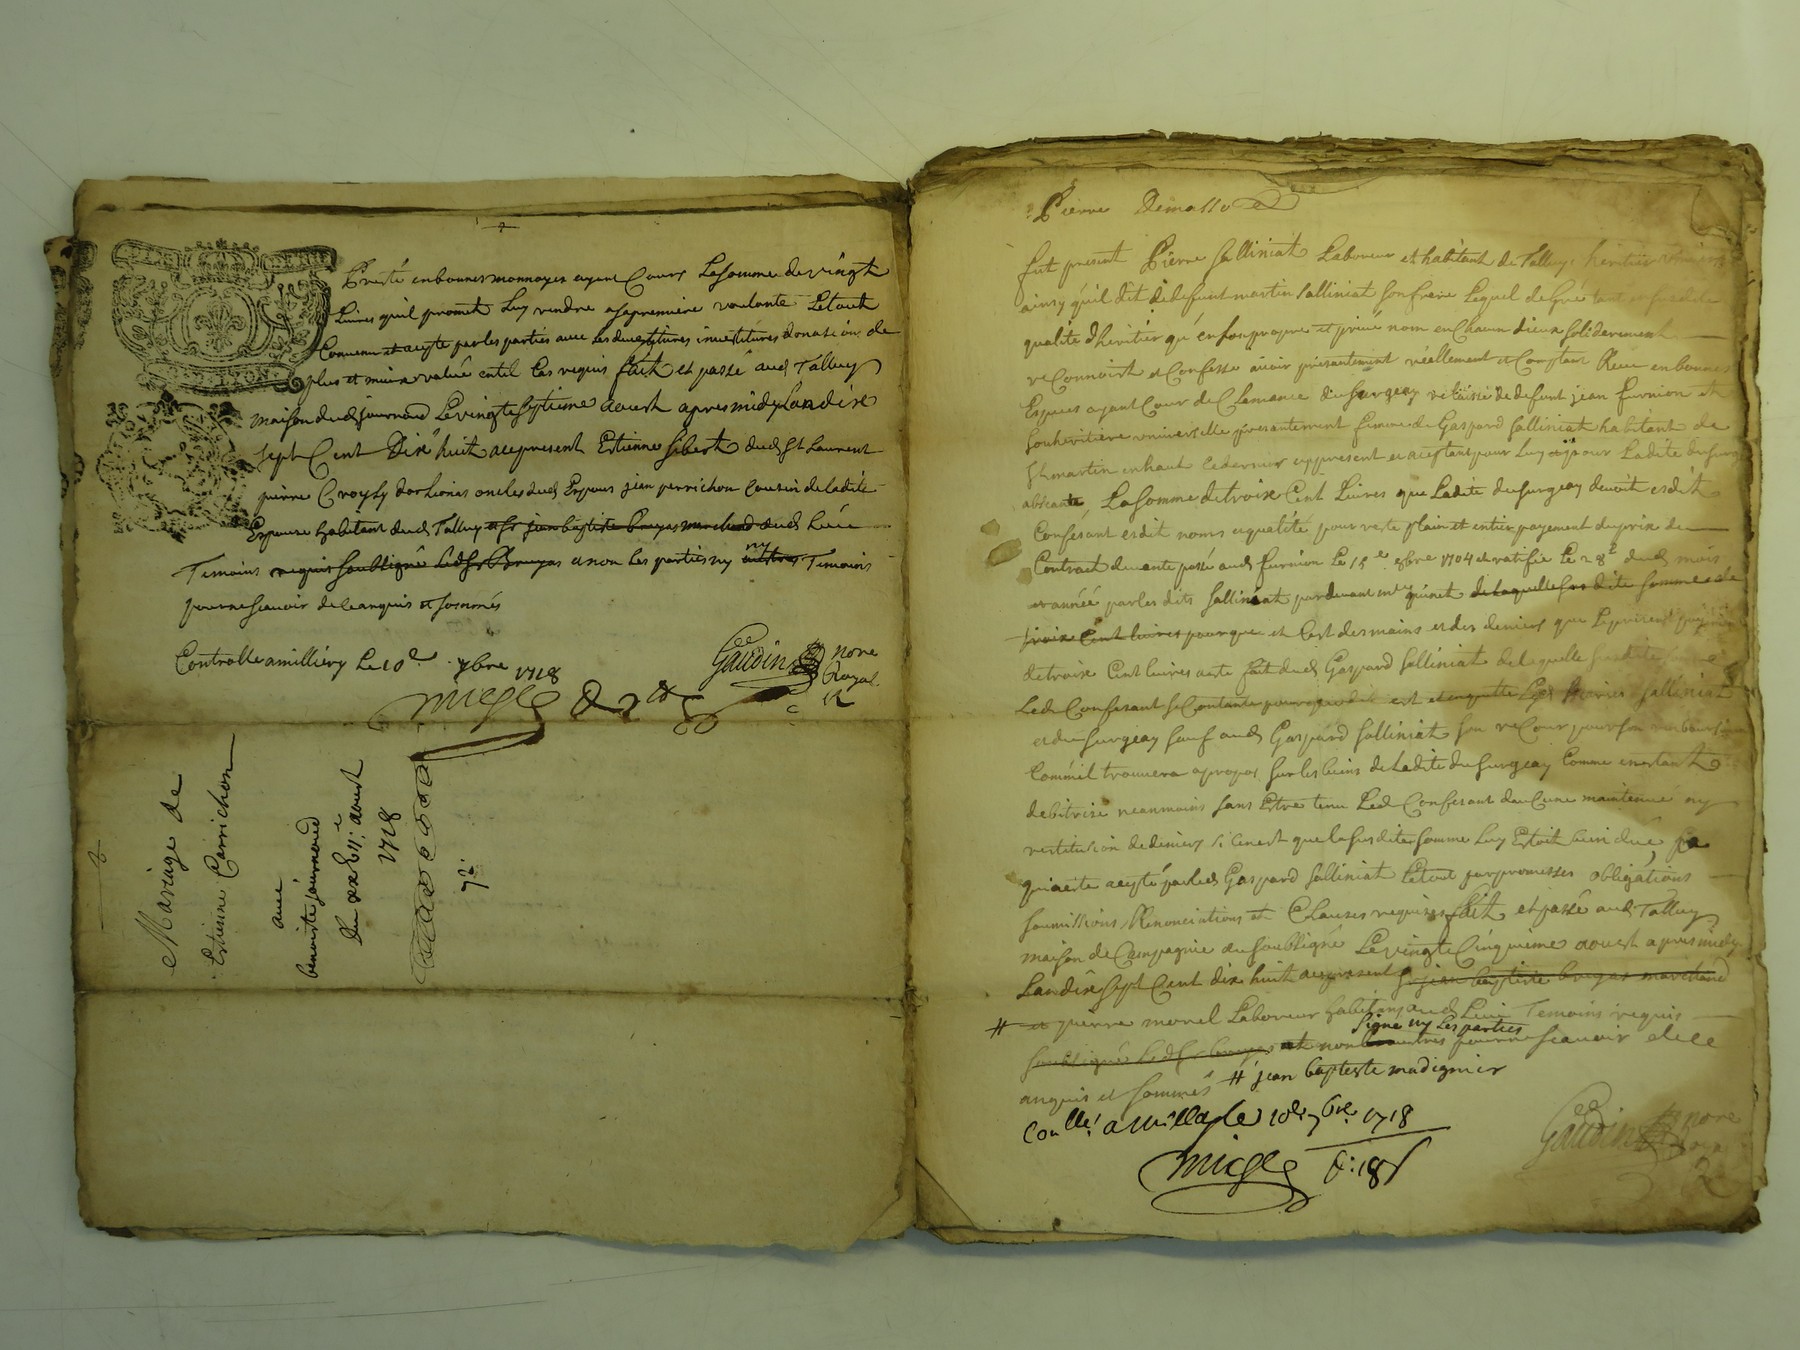 Presté en bonnes monnoyes ayant Cours La somme de vingt
Livres quil promet Luy rendre a sa premiere voulonté Le tout
Convenu et acepté par les parties avec les devestitures investitures donation de
plus et mieux value en tel Cas requis fait et passé aud Talluy
maison dud Journoud Le vingt septieme Aoust apres midy Lan dix
sept Cent Dix huit au present Estienne Sibert dud St Laurent
pierre oncles dud Espoux jean perrichon cousin de ladite
Espouse habitant dud Talluy et sr jean baptiste Bruyas marchand dud Lieu
Temoins requis soubsigné Led sr Bruyas et non les parties ny ny autres Temoins
pour ne scavoir de ce enquis et sommés
Controlle a milliery Le 10e 7bre 1718
Gaudin nore
Royal
Mariage de
Estienne Carrichon
avec
benoiste journoud
du xxvii: aoust
1718
Pierre
fut present Pierre Salliniat Laboureur et habitant de Talluy heritier
ainsy quil dit de defunt martin Salliniat son frere Lequel de gré tant en
qualité dheritier qu'en son propre et privé nom en Chacun dieux solidairement
reConnoist et Confesse avoir presantement reellement et Comptant Receu en bonnes
Especes ayant Cour de Clemance du Surgeay relaissée de defunt jean furnion et
son heritiere universelle presantement femme de Gaspard Salliniat habitant de
St martin en haut Ce dernier appresent et aceptant pour Luy et pour Ladite du Surgeay
absente, La somme de trois Cent Livres que Ladite du Surgeay devoit esdit
Confesant esdit noms et qualité pour reste plain et entier payement du prix du
Contract de vante passé aud furnion Le 15e 9bre 1704 et ratifié Le 28e dud mois
et année par les dits Salliniat pardevant mre de laquelle sus dite somme de
trois Cent livres pour que et C'est des mains et des deniers que Le present
de trois Cent livres a esté fait dud Gaspard Salliniat de laquelle susdite somme
Led Confesant se Contante Salliniat
et du Surgeay sauf aud Gaspard Salliniat son reCour pour son
Comme il trouvera a propos sur les biens de Ladite du Surgeay Comme en estant
debitrice neanmoins sans Estre tenu Led Confesant dauCune maintenue ny
restitution de deniers si ce nest que la susdite somme Luy Estoit bien due,
qui a esté acepté par led Gaspard Salliniat Le tout par promesses obligations
soumissions Renonciations et Clauses requises fait et passé aud Talluy
maison de Campagnie du soubsigné Le vingt Cinquieme aoust apres midy
Lan dix sept Cent dix huit au present sr jean baptiste bruyas marchand
# et pierre morel Laboureur habitans aud Lieu Temoins requis
signé ny Les parties
soubsigné Led sr bruyas et non les autres pour ne scavoir de ce
enquis et sommés # jean baptiste madignier
Conllé a millery le 10e 7bre 1718
Gaudin nore